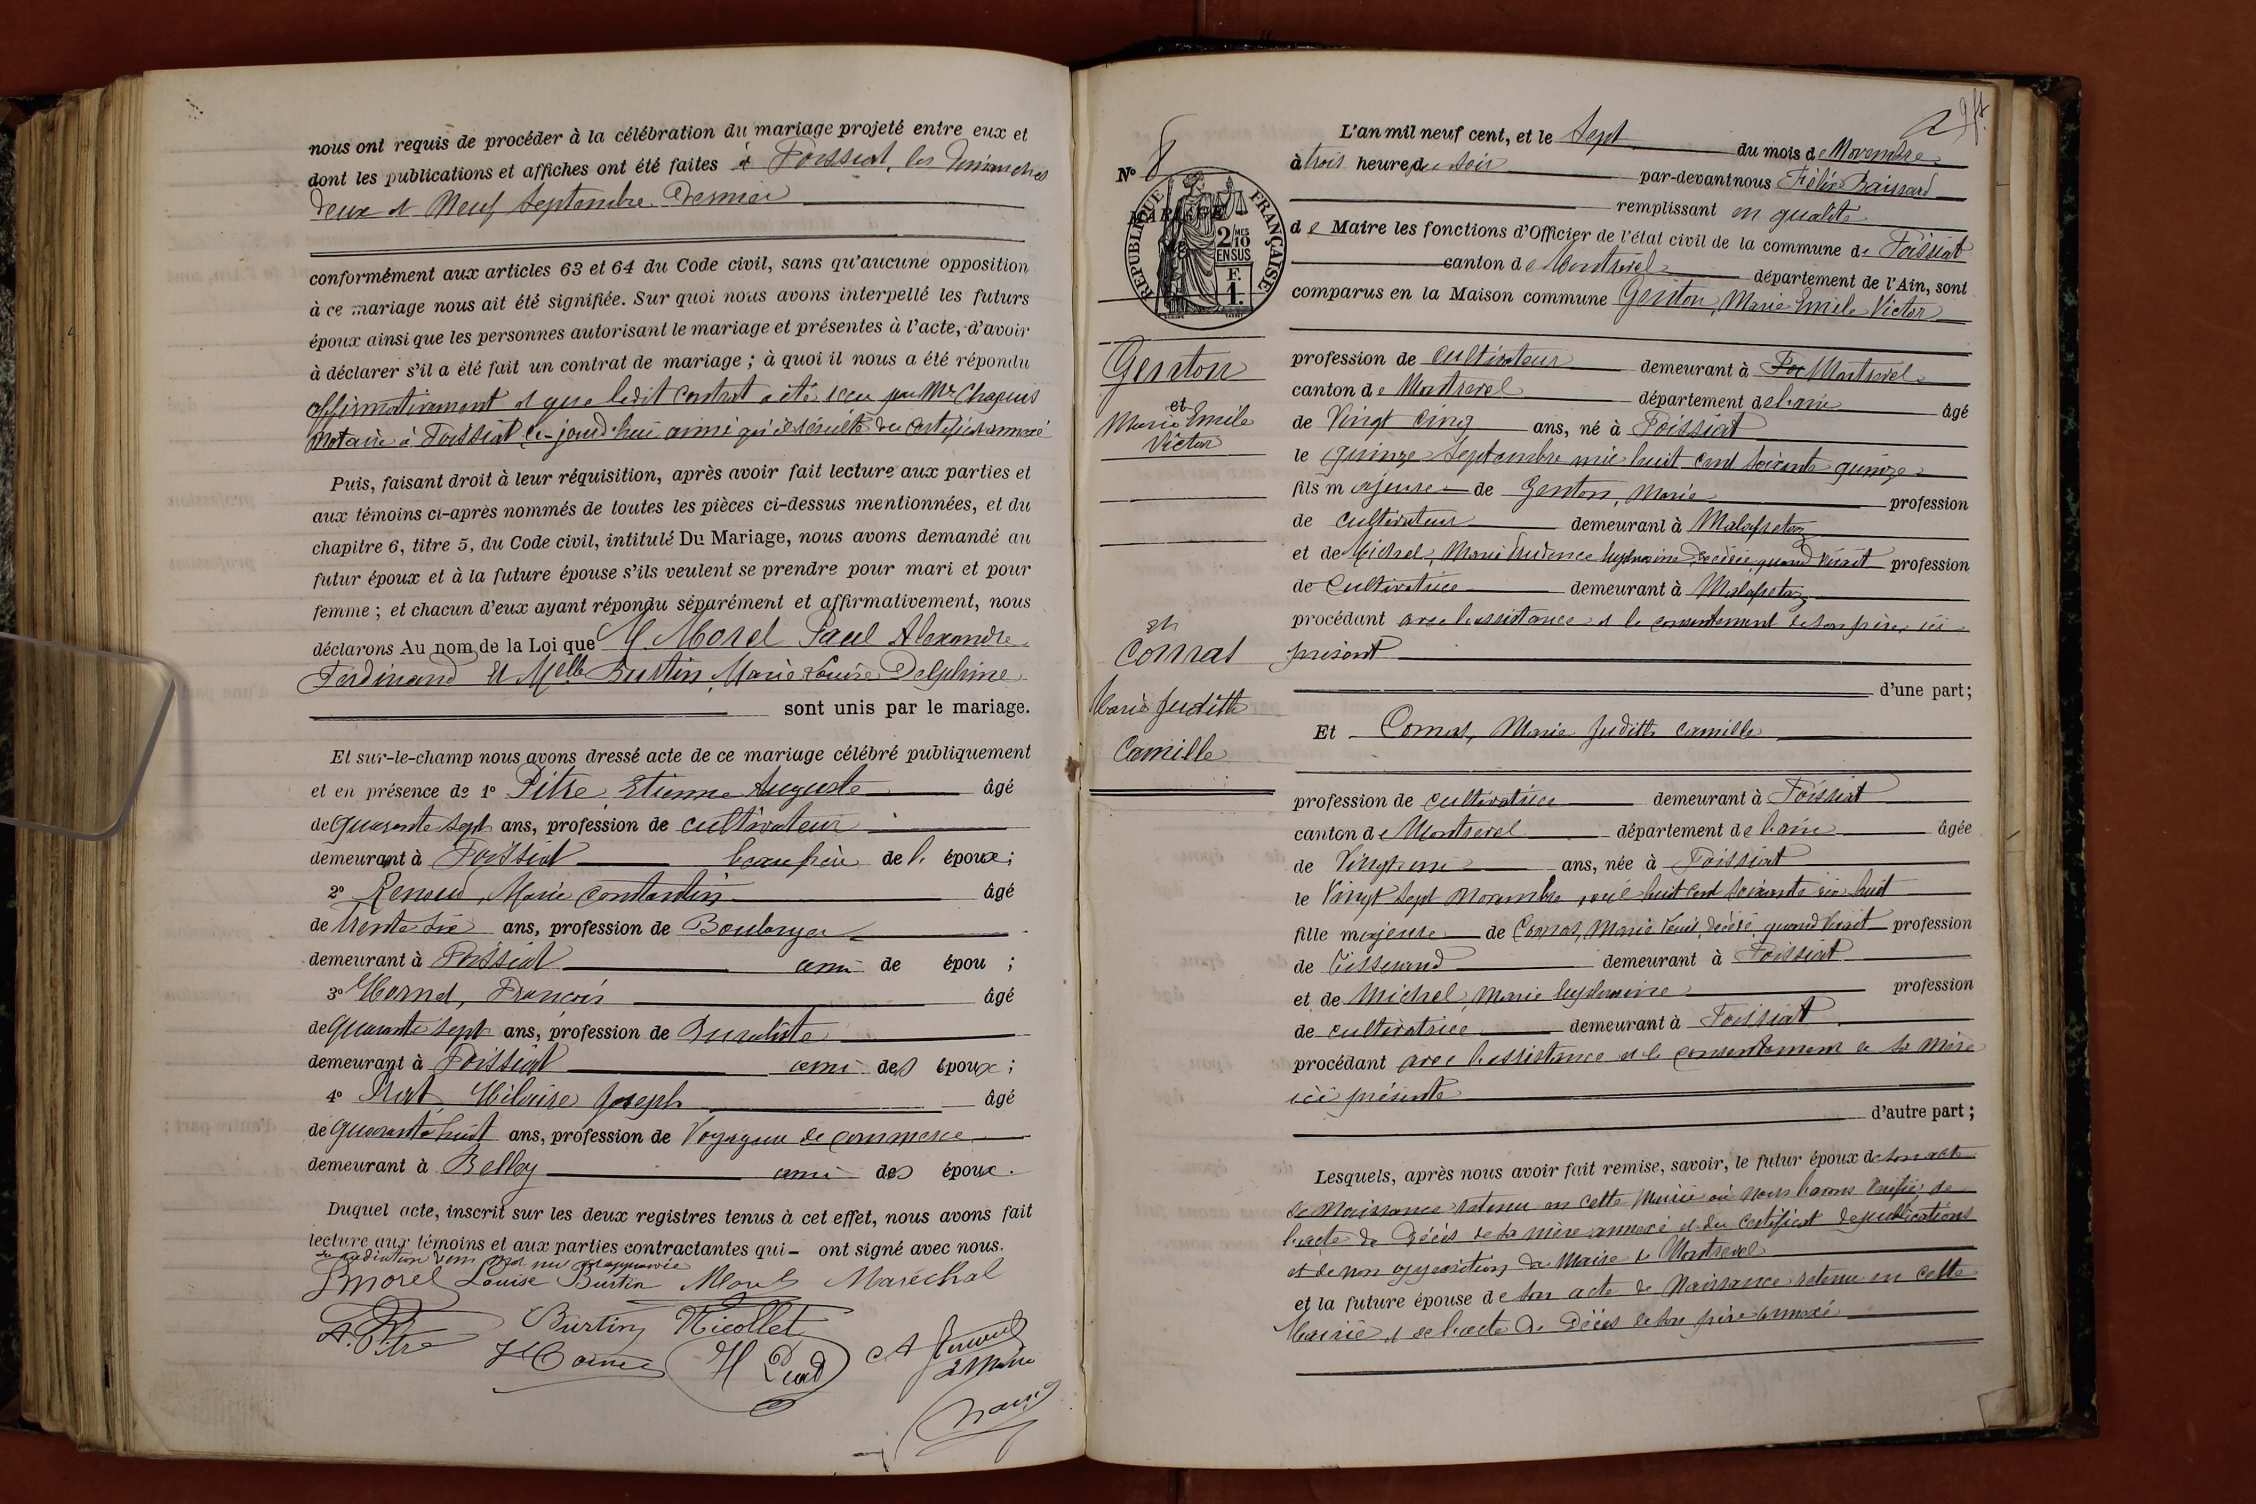 nous ont requis de procéder à la célébration du mariage projeté entre eux et
dont les publications et affiches ont été faites à Foissiat, les Dimanches
Deux et Neuf Septembre Dernier
conformément aux articles 63 et 64 du Code civil, sans qu'aucune opposition
à ce mariage nous ait été signifiée. Sur quoi nous avons interpellé les futurs
époux ainsi que les personnes autorisant le mariage et présentes à l'acte, d'avoir
à déclarer s'il a été fait un contrat de mariage ; à quoi il nous a été répondu
affirmativement et que ledit contrat a été reçu par Me Chapuis
Notaire à Foissiat ce jourd'hui ainsi qu'il résulte du certificat annexé
Puis, faisant droit à leur réquisition, après avoir fait lecture aux parties et
aux témoins ci-après nommés de toutes les pièces ci-dessus mentionnées, et du
chapitre 6, titre 5, du Code civil, intitulé Du Mariage, nous avons demandé au
futur époux et à la future épouse s'ils veulent se prendre pour mari et pour
femme ; et chacun d'eux ayant répondu séparément et affirmativement, nous
déclarons Au nom de la Loi que M. Morel Paul Alexandre
Ferdinand et Melle Burtin Marie Louise Delphine
sont unis par le mariage.
Et sur-le-champ nous avons dressé acte de ce mariage célébré publiquement
et en présence de 1o Pitre, Etienne Auguste âgé
de quarante sept ans, profession de cultivateur
demeurant à Foissiat beau frère de l' époux ;
2o Renoud, Marie Constantin âgé
de trente six ans, profession de Boulanger
demeurant à Foissiat ami de épou ;
3o Mornet, François âgé
de quarante sept ans, profession de Buraliste
demeurant à Foissiat ami des époux ;
4o Prat Hilaire Joseph âgé
de quarante huit ans, profession de Voyageur de commerce
demeurant à Belley ami des époux.
Duquel acte, inscrit sur les deux registres tenus à cet effet, nous avons fait
lecture aux témoins et aux parties contractantes qui ont signé avec nous.
Morel Louise Burtin Maréchal
Burtin Nicollet
A. Pitre
N° 8
MARIAGE
RÉPUBLIQUE FRANÇAISE
2/10 MES
EN SUS
F.
1.
Genton
et
Marie Emile
Victor
et
Comas
Marie Judith
Camille
L'an mil neuf cent, et le Sept du mois de Novembre
à trois heures du soir par-devant nous Félix Baissard
remplissant en qualité
de Maire les fonctions d'Officier de l'état civil de la commune de Foissiat
canton de Montrevel département de l'Ain, sont
comparus en la Maison commune Genton, Marie Emile Victor
profession de cultivateur demeurant à Montrevel
canton de Montrevel département de l'ain âgé
de Vingt cinq ans, né à Foissiat
le quinze Septembre mil huit cent soixante quinze
fils majeur de Genton, Marie profession
de cultivateur demeurant à Malafretaz
et de Michel, Marie Prudence Euphrasine Décédée, quand vivait profession
de Cultivatrice demeurant à Malafretaz
procédant avec l'assistance et le consentement de son père, ici
présent
d'une part ;
Et Comas, Marie Judith Camille
profession de cultivatrice demeurant à Foissiat
canton de Montrevel département de l'ain âgée
de Vingt un ans, née à Foissiat
le Vingt Sept Novembre, mil huit cent soixante dix huit
fille majeure de Comas, Marie décédé quand vivait profession
de Tisserand demeurant à Foissiat
et de Michel Marie Euphrasine profession
de cultivatrice demeurant à Foissiat
procédant avec l'assistance et le consentement de sa mère
ici présente
d'autre part ;
Lesquels, après nous avoir fait remise, savoir, le futur époux de son acte
de Naissance retenu en cette Mairie où nous l'avons vérifié, de
l'acte de Décès de sa mère annexé et du certificat de publications
et de non opposition du Maire de Montrevel
et la future épouse de son acte de Naissance retenu en cette
Mairie, et de l'acte de Décès de son père annexé